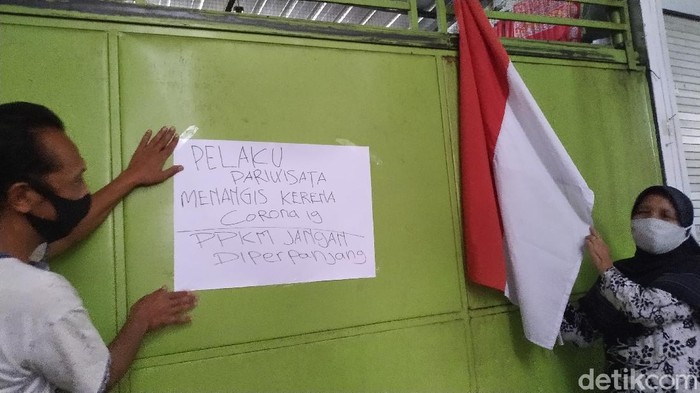 PELAKU
PARIWISATA
MENANGIS KERENA
Corona 19
PPKM JANGAN
DiperPanjang
detikcom